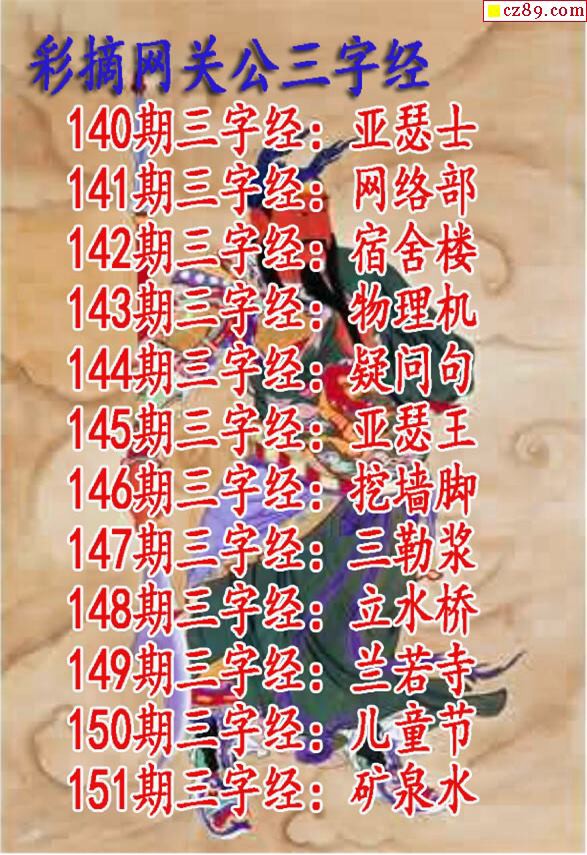 cz89.com
彩摘网关公三字经
140期三字经：亚瑟士
141期三字经：网络部
142期三字经：宿舍楼
143期三字经：物理机
144期三字经：疑问句
145期三字经：亚瑟王
146期三字经：挖墙脚
147期三字经：三勒浆
148期三字经：立水桥
149期三字经：兰若寺
150期三字经：儿童节
151期三字经：矿泉水